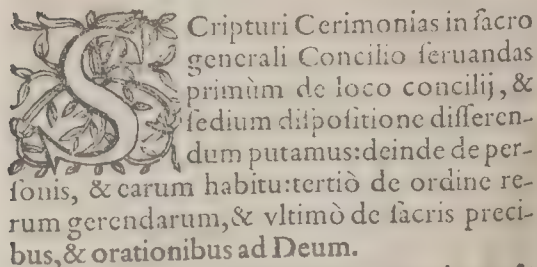 SCripturi Cerimonias in ſacro
generali Concilio ſeruandas
primùm de loco concilij, &
ſedium diſpoſitione differen-
dum putamus: deinde de per-
ſonis, & earum habitu: tertiò de ordine re-
rum gerendarum, & vltimò de ſacris preci-
bus, & orationibus ad Deum.